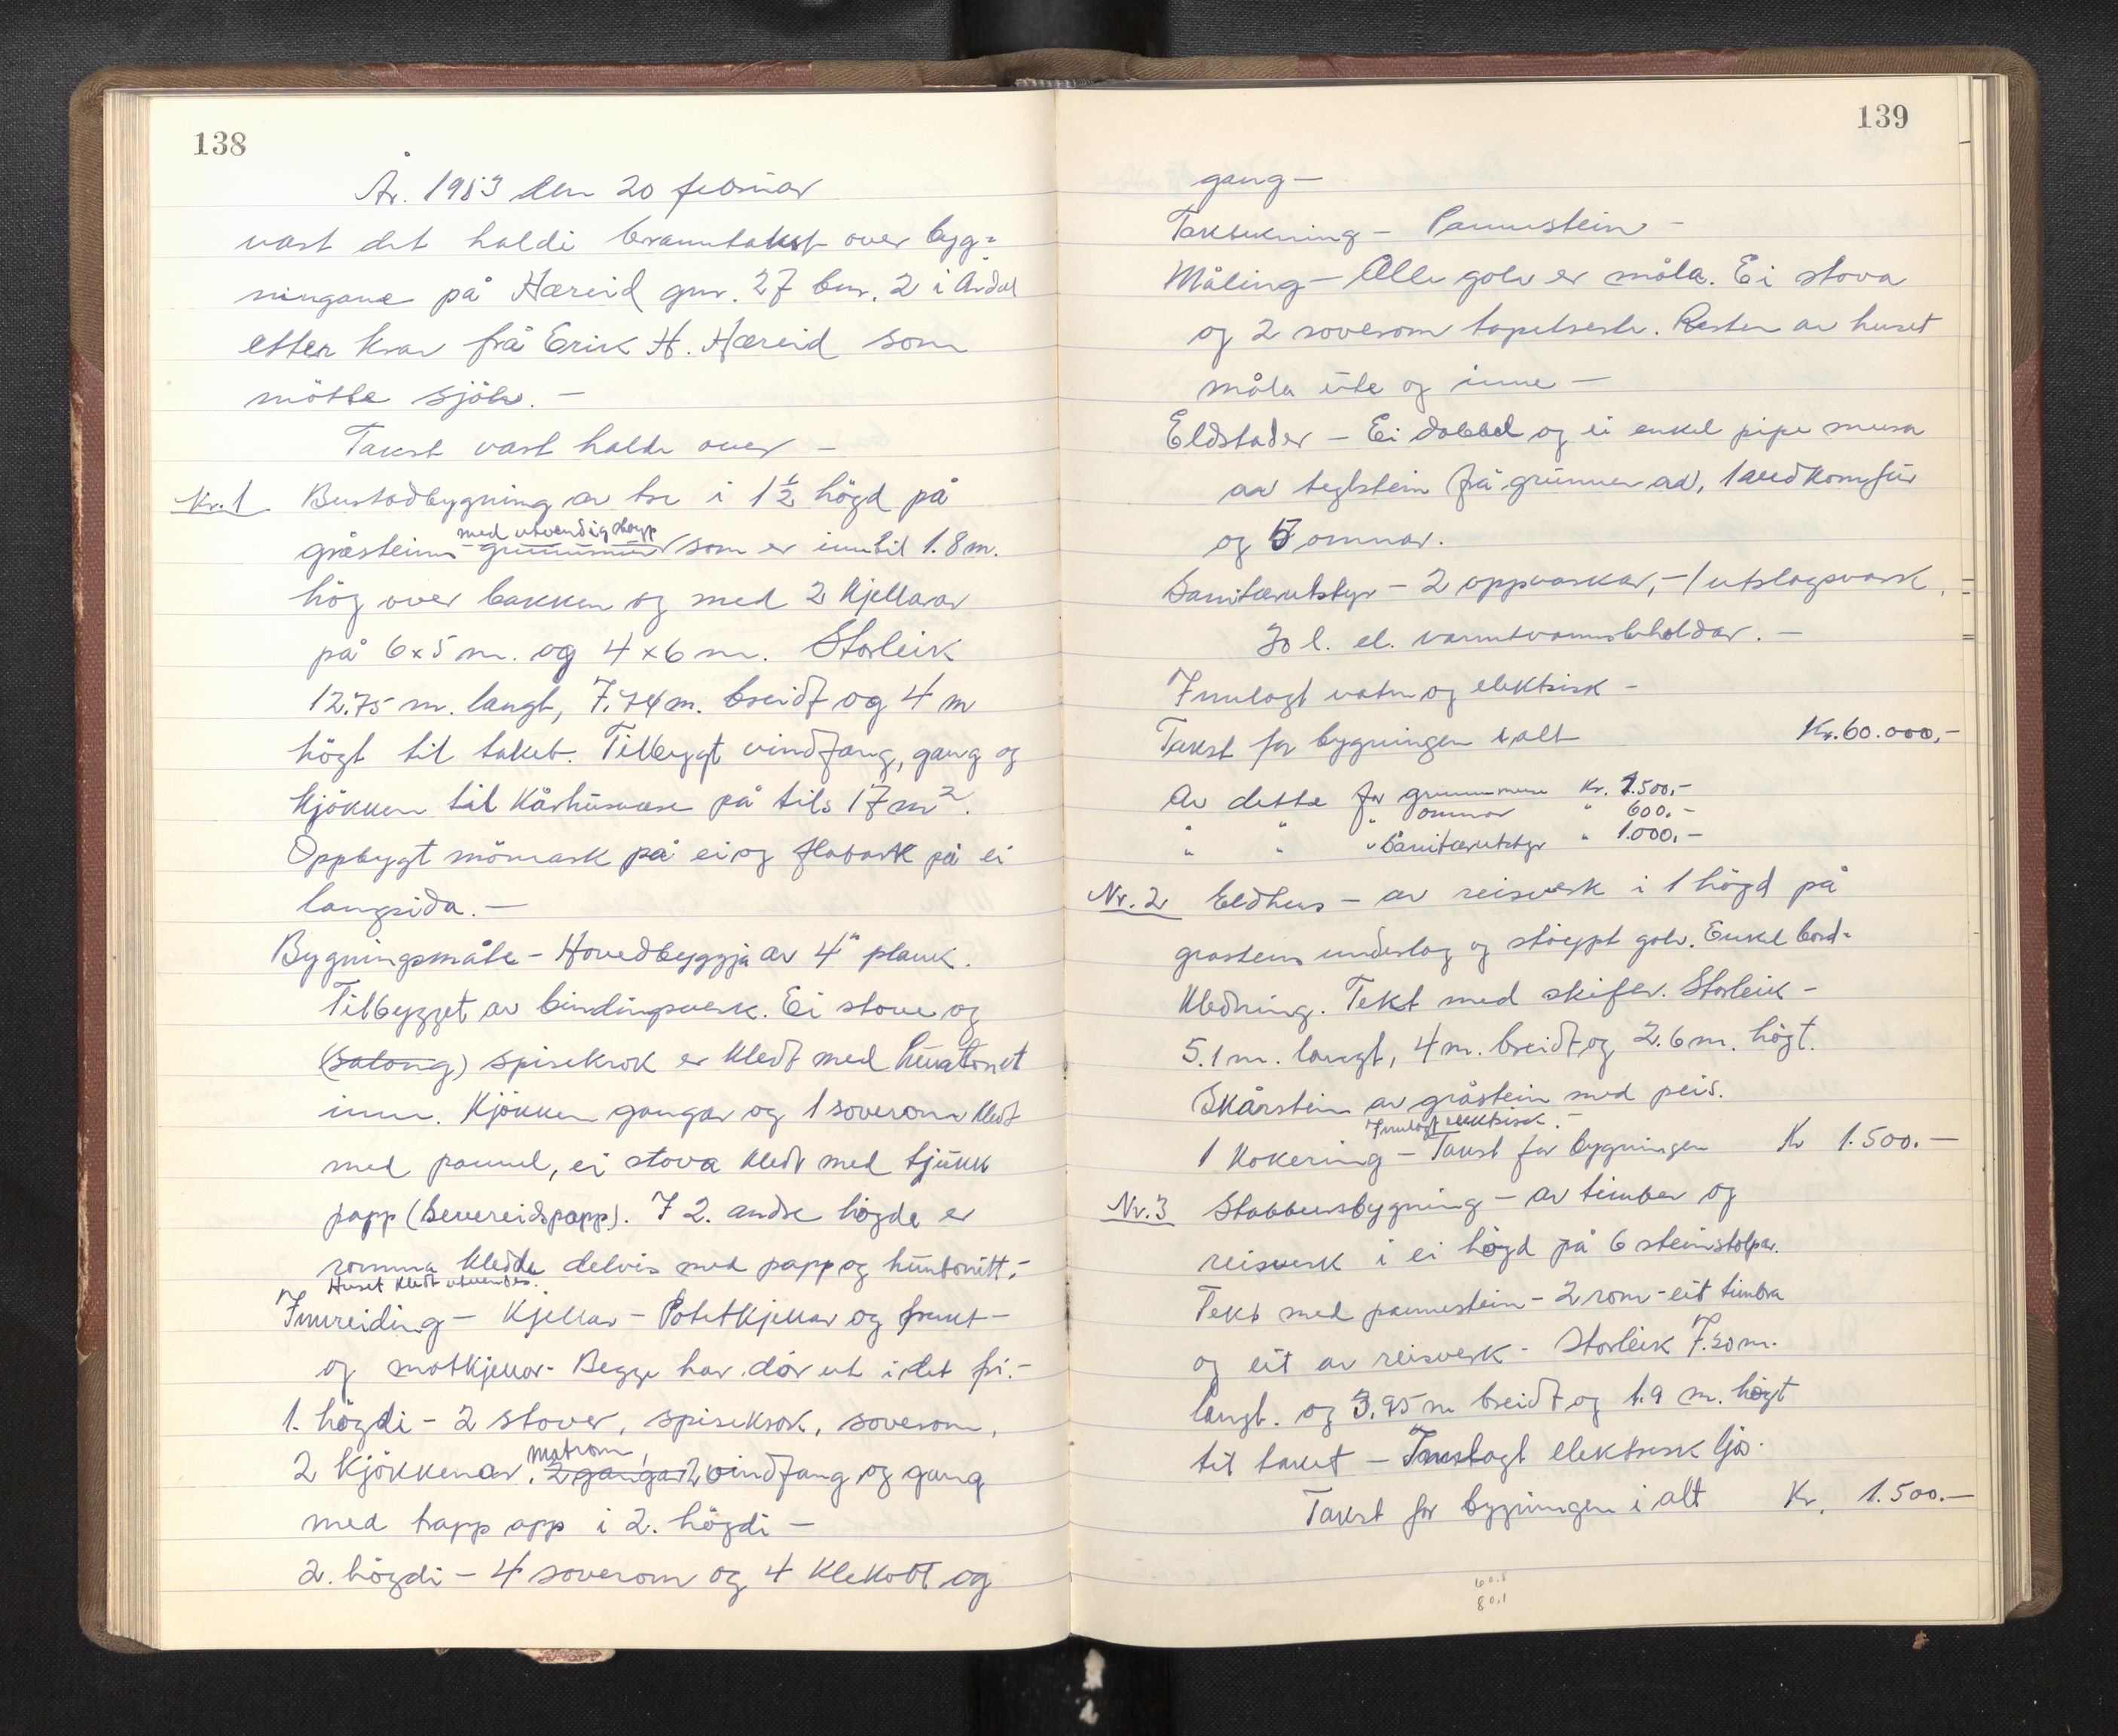 138
År. 1953 den 20 februar
vart det haldi branntakst over byg=
ningane på Hæreid gnr. 27 bnr. 2 i Årdal
etter krav frå Erik H. Hæreid som
mötte sjölv. —
Takst vart halde over —
Nr. 1 Bustadbygning av tre i 1 1/2 högd på
med utvendig støyp
gråsteins grunnmur som er inntil 1.8 m.
hög over bakken og med 2 kjellarar
på 6x5 m. og 4x6 m. Storleik
12.75 m. langt, 7.74 m. breidt og 4 m
högt til taket. Tilbygt vindfang, gang og
kjökken til kårhusvære på tils 17 m2.
Oppbygt mönsark på ei og flatark på ei
langsida. —
Bygningsmåte - Hovedbyggja av 4" plank.
Tilbygget av bindingsverk. Ei stove og
(salong) spisekrok er kledt med huntonit
inn. Kjökken gangar og 1 soverom kledt
med pannel, ei stova kledt med tjukk
papp (Bevereidspapp). I 2. andre högda er
romma kledde delvis med papp og huntonitt.-
Huset kledt utvendes.
Innreiding — Kjellar — Potetkjellar og frukt-
og matkjellar- Begge har dör ut i det fri.-
1. högdi - 2 stover, spisekrok, soverom,
matrom,
2 kjökkenar, 2 gangar 2 vindfang og gang
med trapp opp i 2. högdi —
2. högdi - 4 soverom og 4 klekott og
139
gang —
Taktekning — Pannestein —
Måling — Alle golv er måla. Ei stova
og 2 soverom tapetserte. Resten av huset
måla ute og inne —
Eldstader — Ei dobbel og ei enkel pipe mura
av teglstein frå grunnen av, 1 vedkomfür
og 5 omnar.
Sanitærutstyr - 2 oppvaskar, - 1 utslagsvask,
30 l. el. varmtvannsbeholdar. —
Innlagt vatn og elektrisk —
Takst for bygningen i alt Kr. 60.000,-
Av dette for grunnmur Kr. 7.500,-
" " " omnar " 600,-
" " " Sanitærutstyr " 1.000,-
Nr. 2 Eldhus — av reisverk i 1 högd på
grasteins underlag og stöypt golv. Enkel bord=
kledning. Tekt med skifer. Storleik -
5.1 m. langt, 4 m. breidt og 2.6 m. högt.
Skårstein av gråstein med peis.
Innlagt elektrisk. —
1 Kokering — Takst for bygningen Kr 1.500.—
Nr. 3 Stabbursbygning — av timber og
reisverk i ei högd på 6 steinstolpar.
Tekt med pannestein - 2 rom - eit timbra
og eit av reisverk - Storleik 7.50 m.
langt. og 3.95 m breidt og 1.9 m. högt
til taket — Innlagt elektrisk ljos.
Takst for bygningen i alt Kr. 1.500.—
60.1
80.1